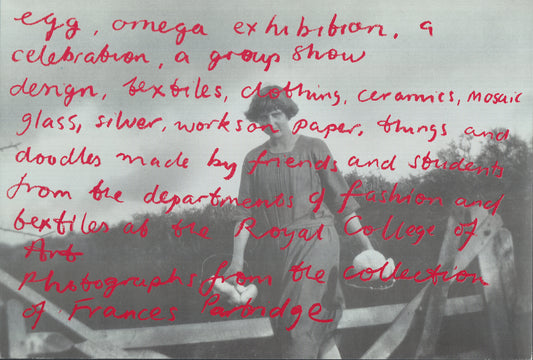 egg, omega exhibition, a
celebration, a group show
design, textiles, clothing, ceramics, mosaic
glass, silver, works on paper, things and
doodles made by friends and students
from the departments of fashion and
textiles at the Royal College of
Art
photographs from the collection
of Frances Partridge